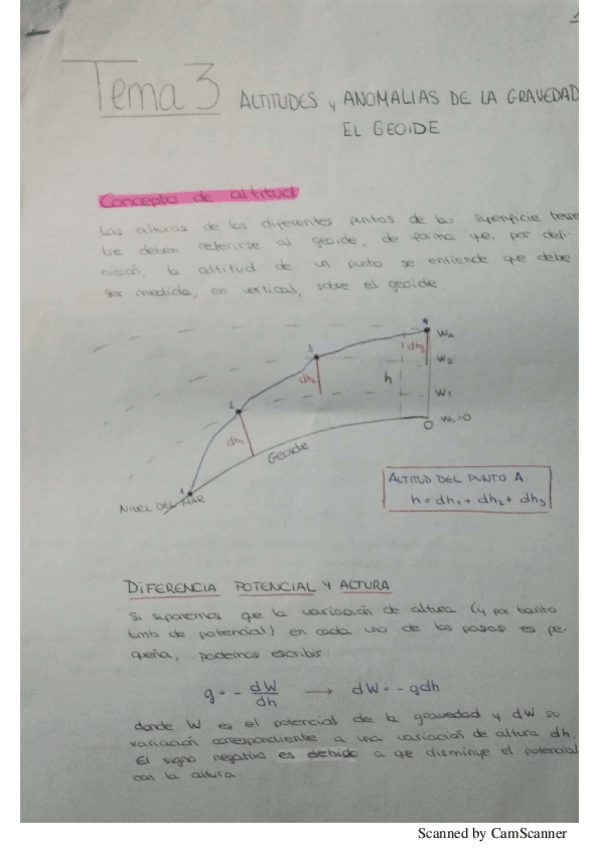 1
Tema 3 ALTITUDES y ANOMALIAS DE LA GRAVEDAD
EL GEOIDE
Concepto de altitud
Las alturas de los diferentes puntos de la superficie terres
tre deben referirse al geoide, de forma que, por defi-
nición, la altitud de un punto se entiende que debe
ser medida, en vertical, sobre el geoide.
4
W₂
W1
W₀=0
3
2
1
dh3
dh2
dh1
h
O
Geoide
NIVEL DEL MAR
ALTITUD DEL PUNTO A
h = dh1 + dh2 + dh3
DIFERENCIA POTENCIAL Y ALTURA
Si suponemos que la variación de altura (y por tanto
tmb de potencial) en cada uno de los pasos es pe-
queña, podemos escribir:
g = - dW/dh → dW = - gdh
donde W es el potencial de la gravedad y dW su
variación correspondiente a una variación de altura dh.
El signo negativo es debido a qe disminuye el potencial
con la altura.
Scanned by CamScanner